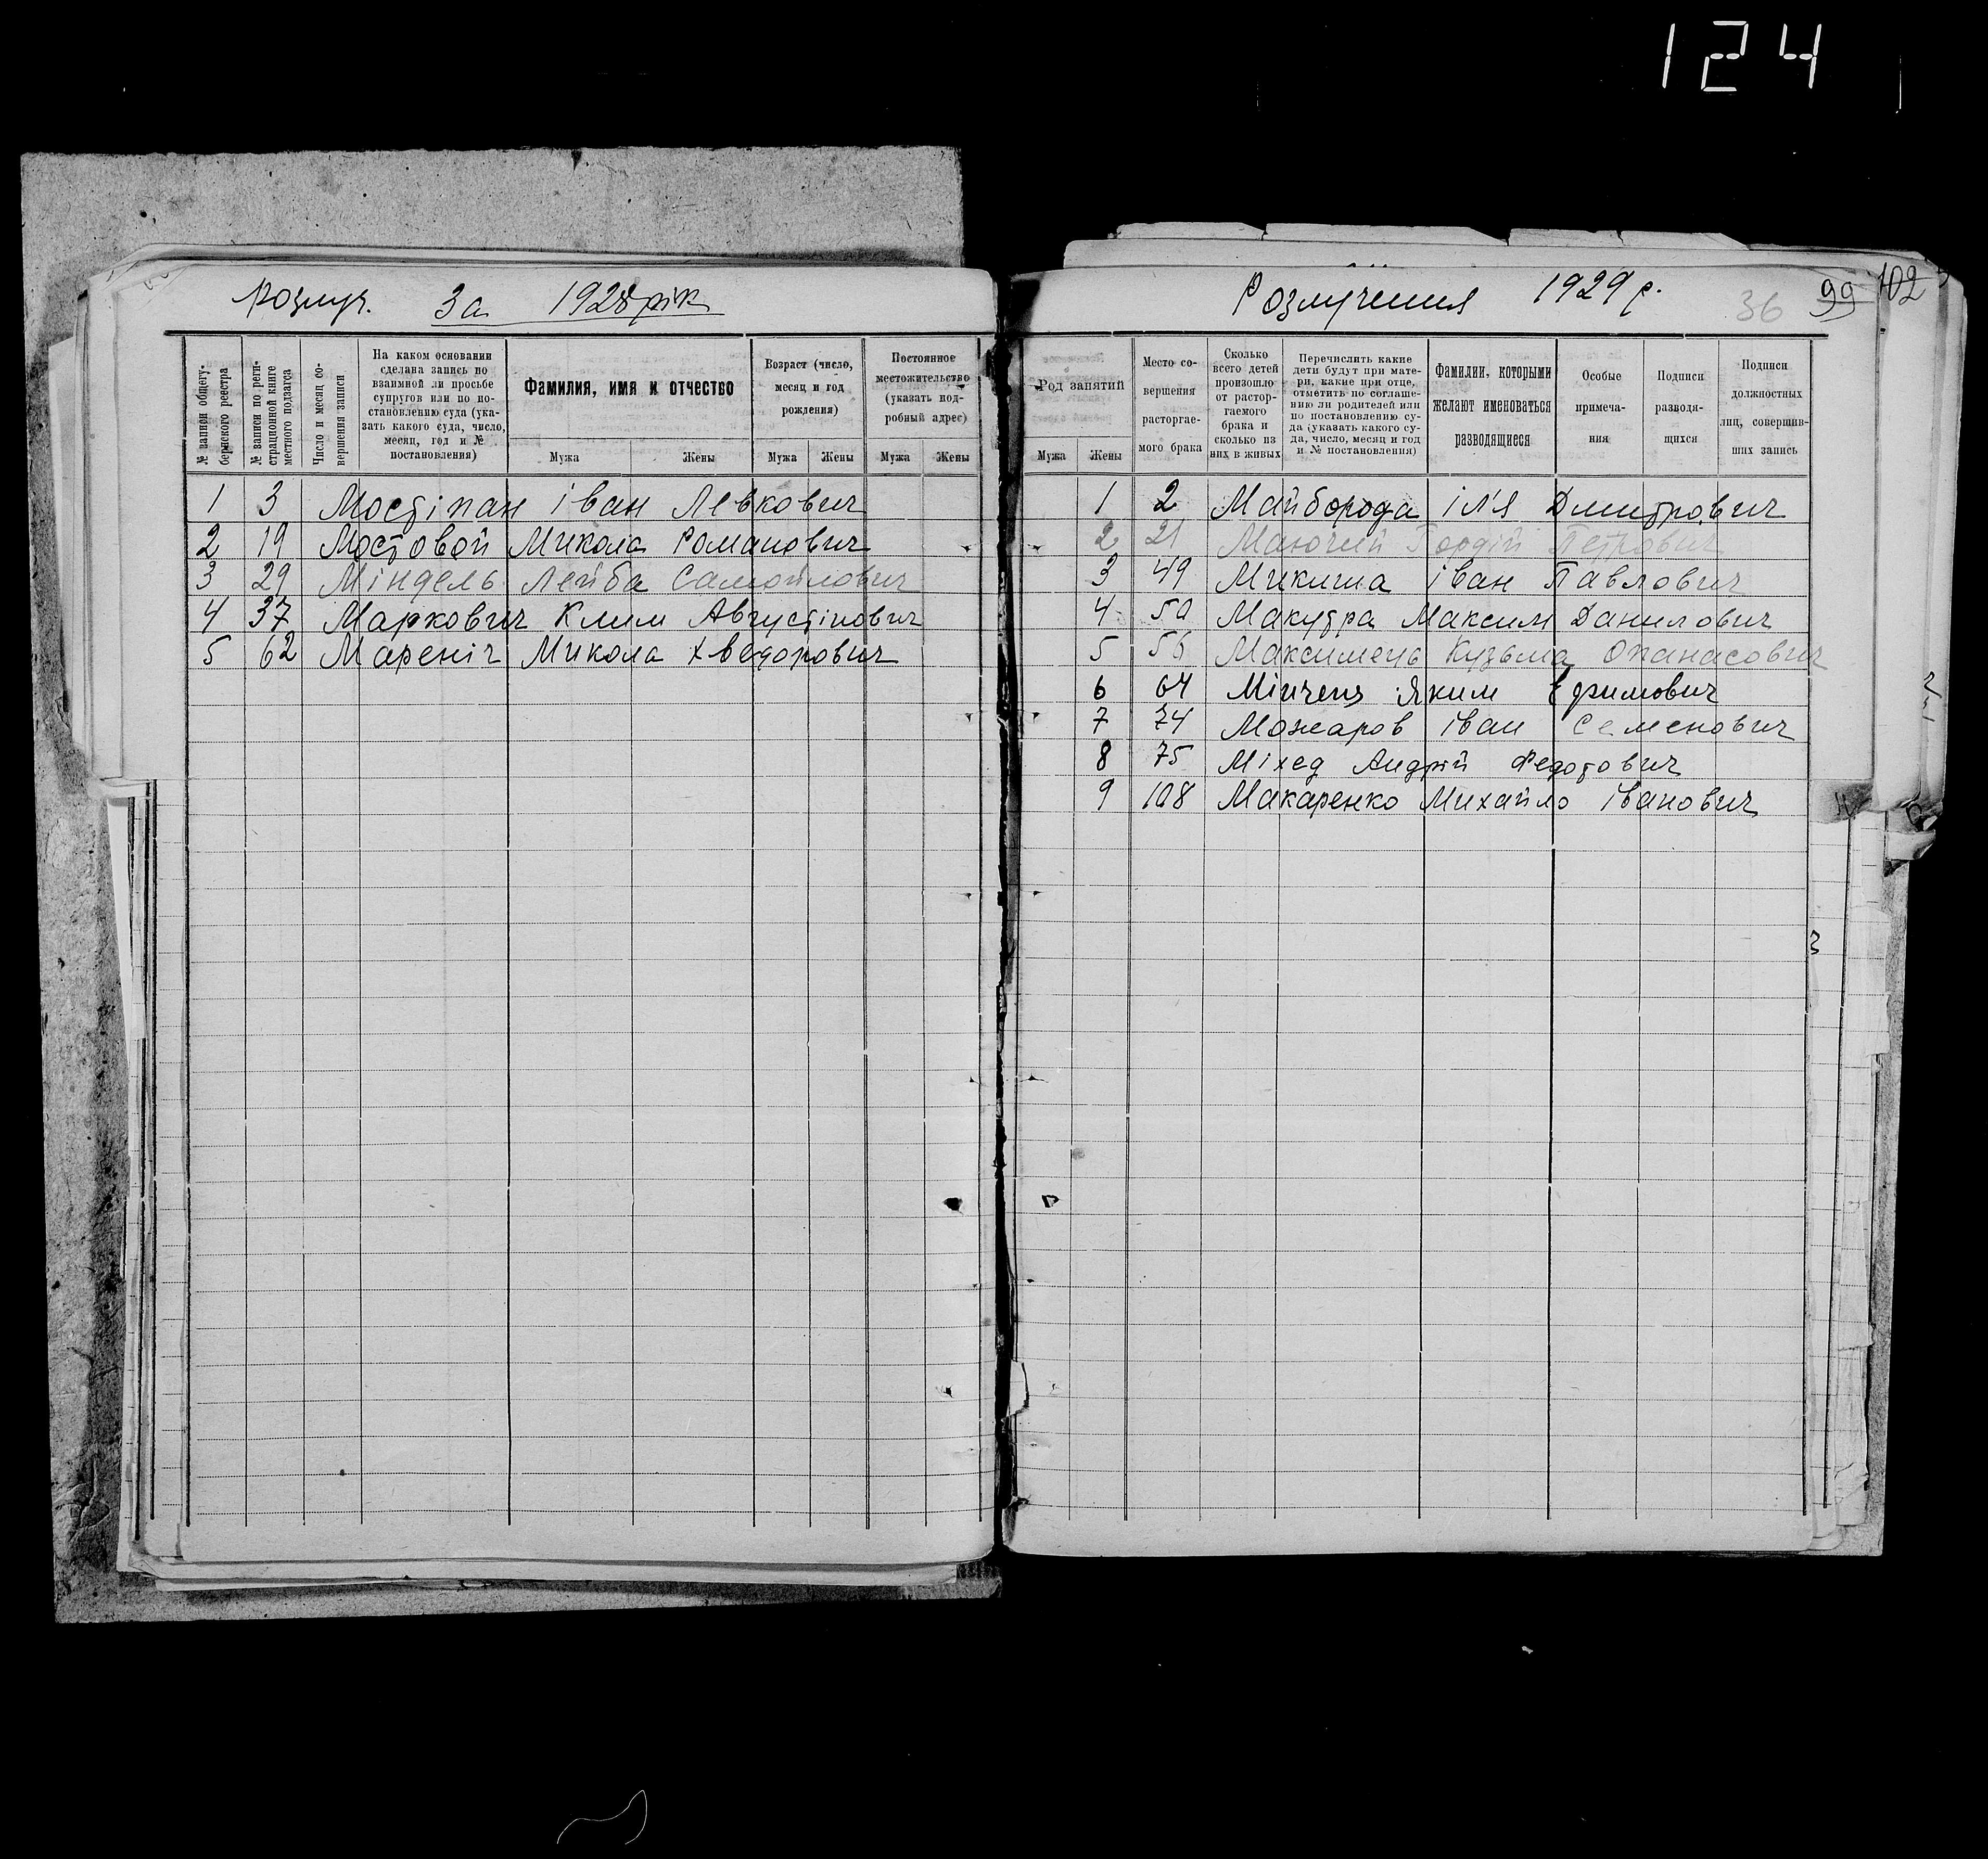 124
Розлуч. За 1928 рік
№ записи общегу-
бернского реестра
№ записи по реги-
страционной книге
местного подзагса
Число и месяц со-
вершения записи
На каком основании
сделана запись по
взаимной ли просьбе
супругов или по по-
становлению суда (ука-
зать какого суда, число,
месяц, год и №
постановления)
Фамилия, имя и отчество
Мужа Жены
Возраст (число,
месяц и год
рождения)
Мужа Жены
Постоянное
местожительство
(указать под-
робный адрес)
Мужа Жены
1 3 Мостіпан Іван Левкович
2 19 Мостовой Микола Романович
3 29 Міндель Лейба Самойлович
4 37 Маркович Клим Августінович
5 62 Мареніч Микола Хведорович
Розлучення 1929 р.
36 99 102
Род занятий
Мужа Жены
Место со-
вершения
расторгае-
мого брака
Сколько
всего детей
произошло
от растор-
гаемого
брака и
сколько из
них в живых
Перечислить какие
дети будут при мате-
ри, какие при отце,
отметить по соглаше-
нию ли родителей или
по постановлению су-
да (указать какого су-
да, число, месяц и год
и № постановления)
Фамилии, которыми
желают именоваться
разводящиеся
Особые
примеча-
ния
Подписи
разводя-
щихся
Подписи
должностных
лиц, совершив-
ших запись
1 2 Майборода Ілʼя Дмитрович
2 21 Маючий Гордій Петрович
3 49 Микиша Іван Павлович
4 50 Макутра Максим Данилович
5 56 Максимець Кузьма Опанасович
6 64 Яким Єфимович
7 74 Можаров Іван Семенович
8 75 Міхед Андрій Федотович
9 108 Макаренко Михайло Іванович